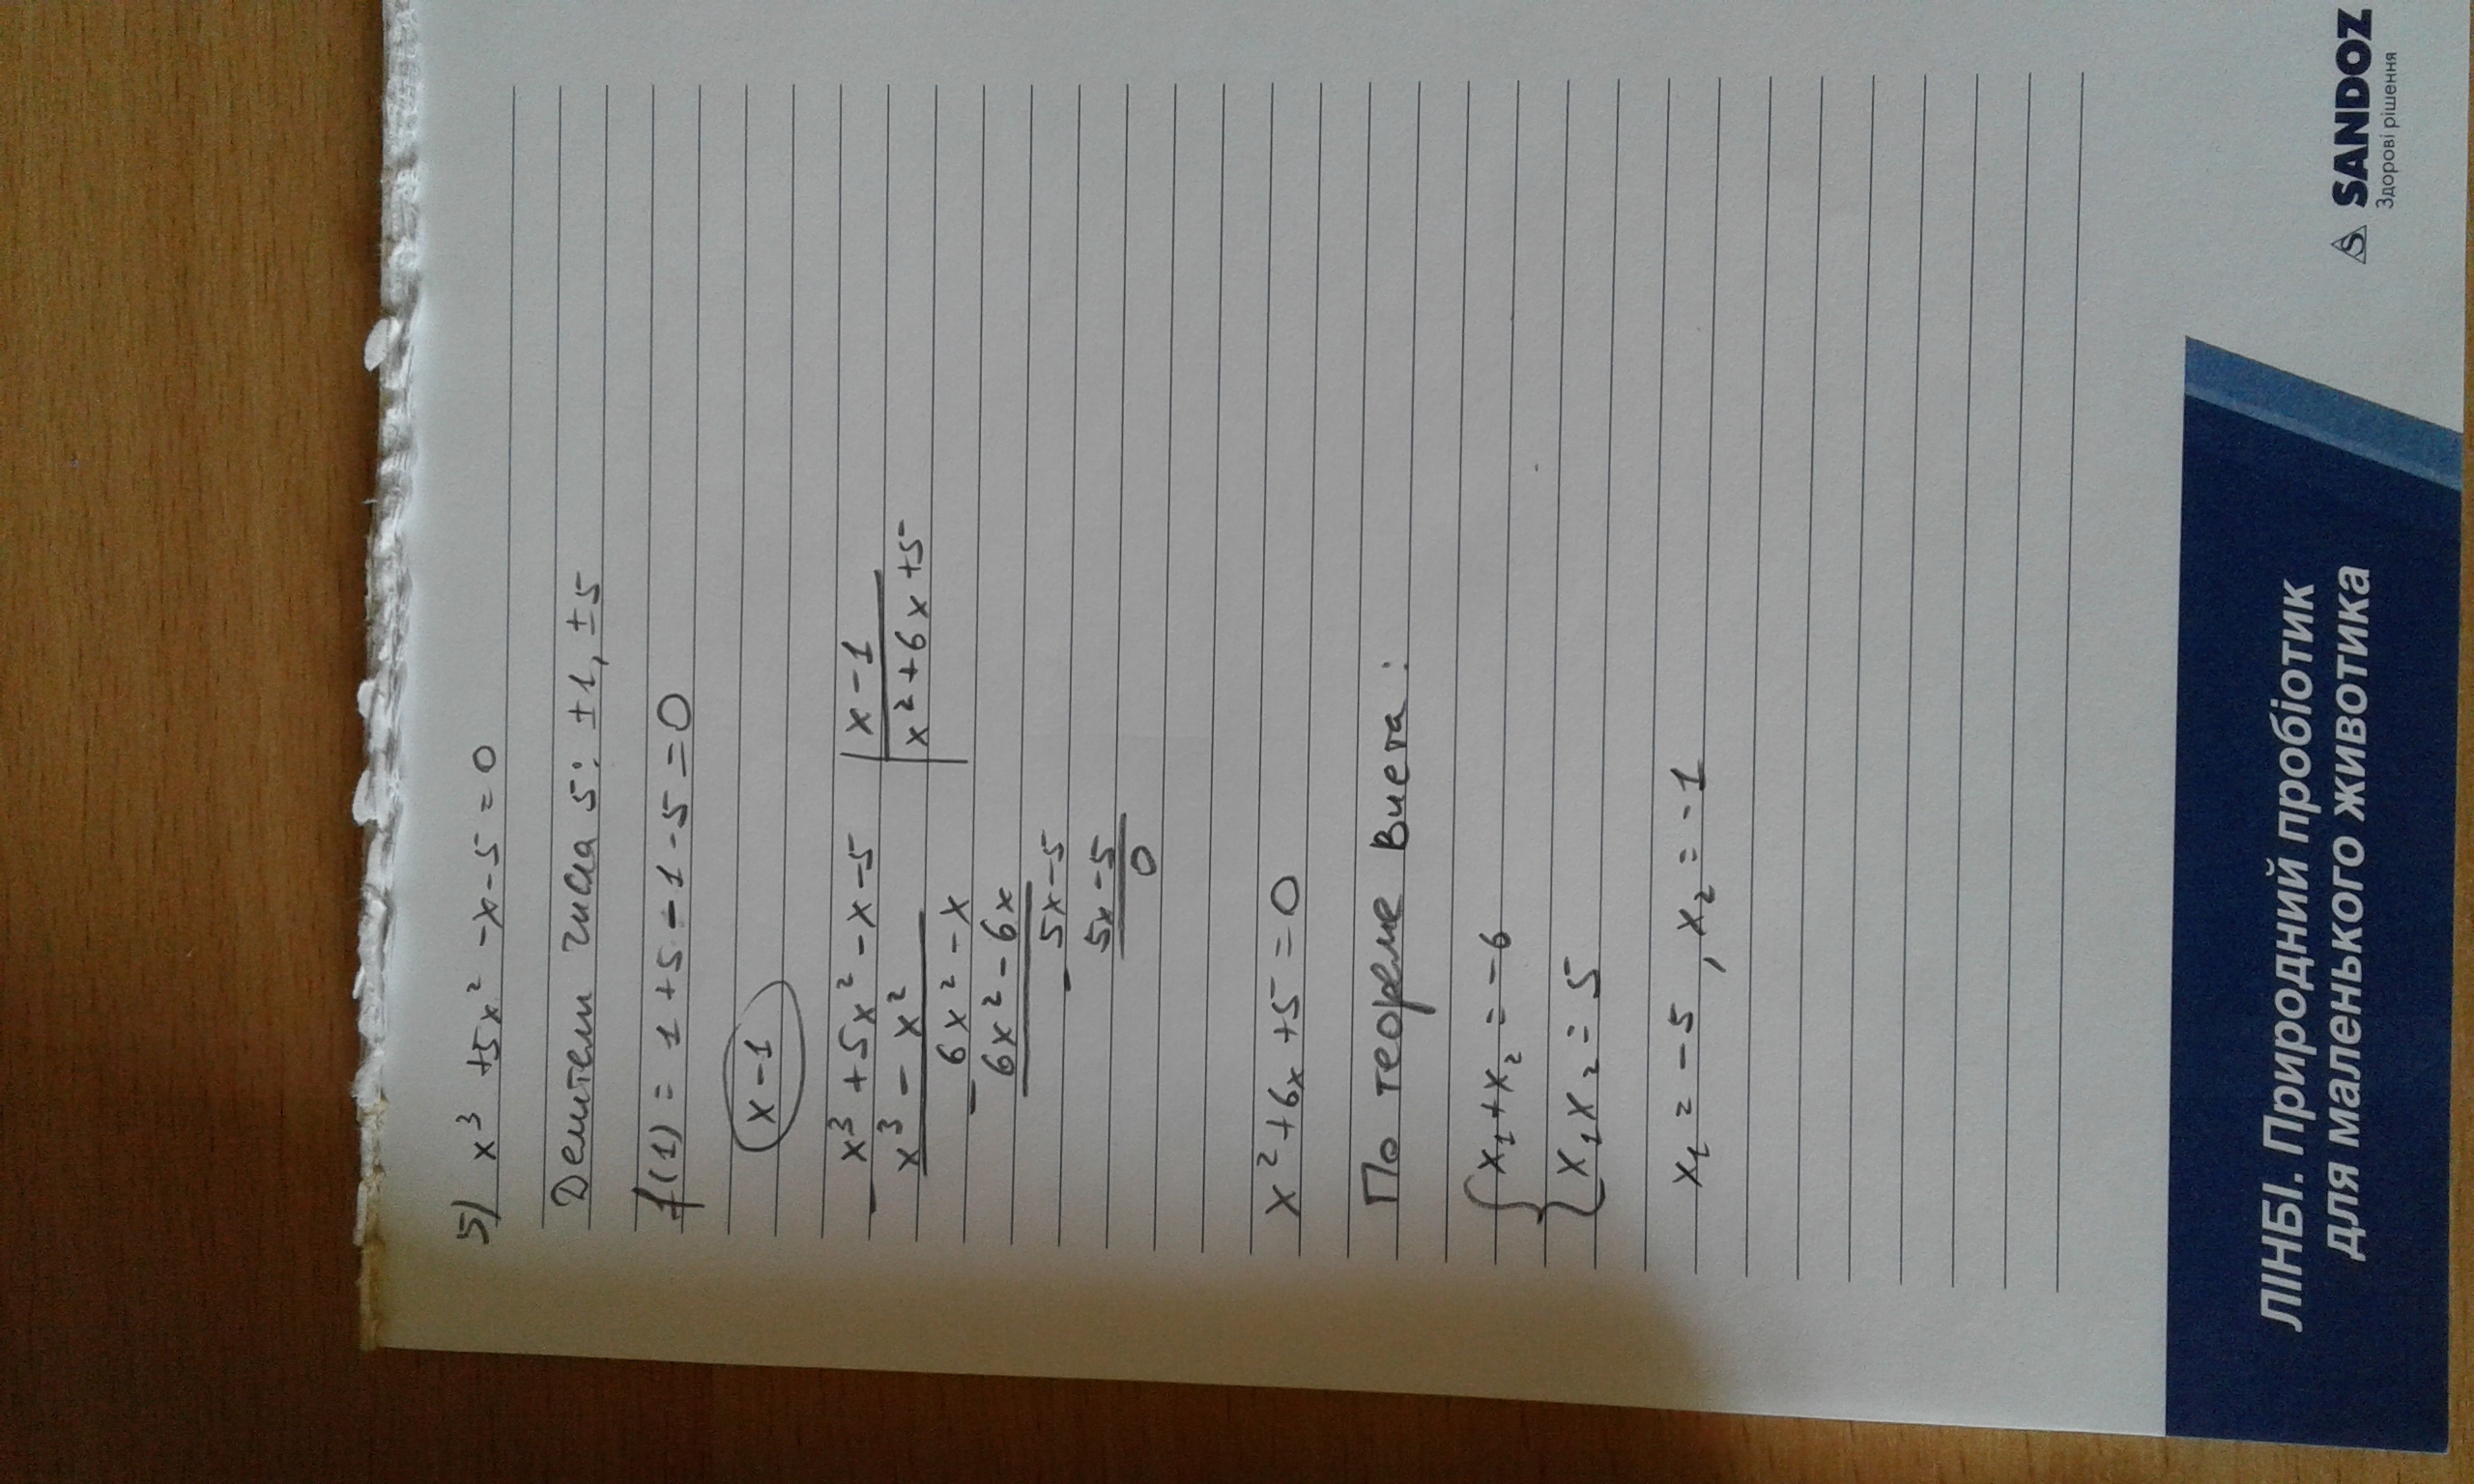 5) x³ + 5x² - x - 5 = 0
Делители числа 5: ±1, ±5
f(1) = 1 + 5 - 1 - 5 = 0
x - 1
x³ + 5x² - x - 5 | x - 1
x³ - x² | x² + 6x + 5
6x² - x
6x² - 6x
5x - 5
5x - 5
0
x² + 6x + 5 = 0
По теореме Виета:
{ x₁ + x₂ = -6
x₁x₂ = 5
x₁ = -5, x₂ = -1
ЛІНБІ. Природний пробіотик
для маленького животика
SANDOZ
Здорові рішення